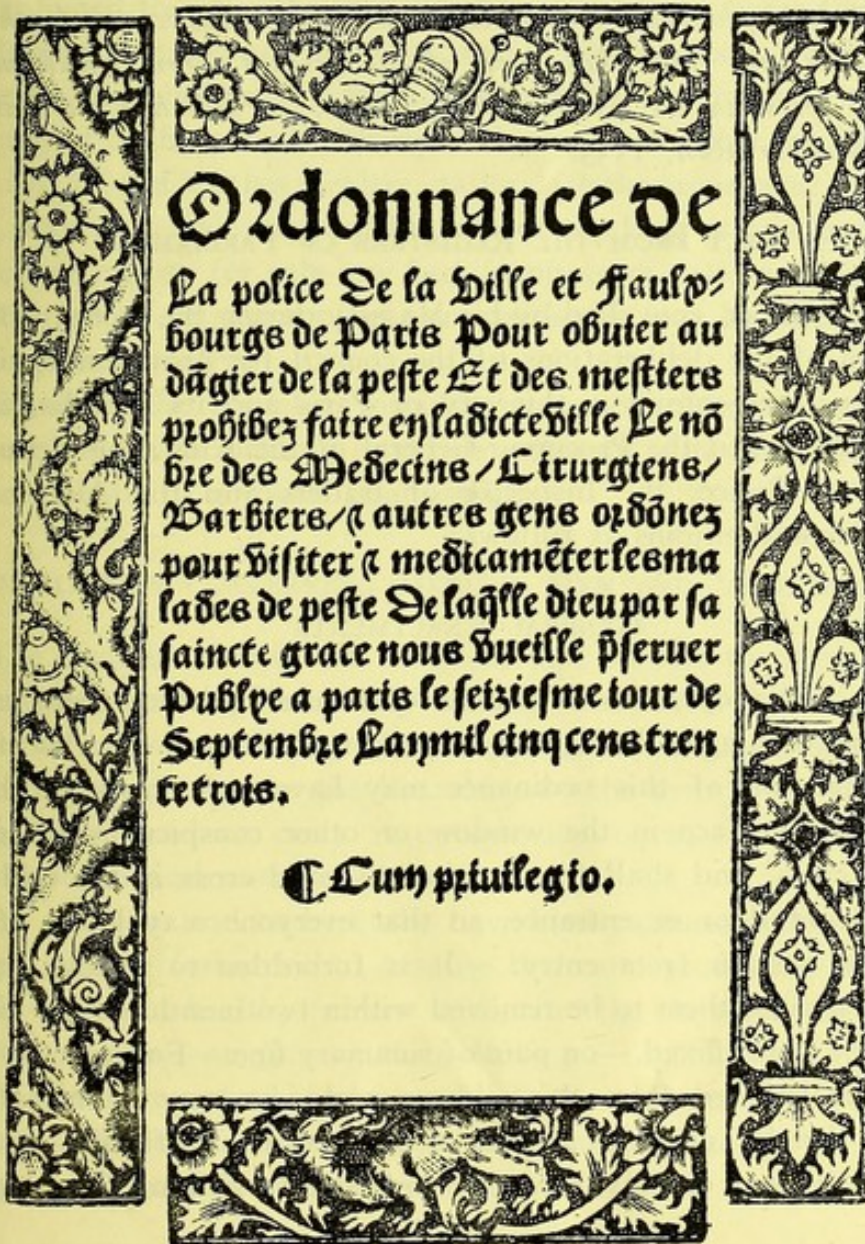 Ordonnance de
La police De la Ville et Faulx⸗
bourgs de Paris Pour obuier au
dãgier de la peste Et des mestiers
prohibez faire en ladicte Ville Le nõ
bre des Medecins / Cirurgiens /
Barbiers / ⁊ autres gens ordõnez
pour visiter ⁊ medicamẽter les ma
lades de peste De laq̃lle dieu par sa
saincte grace nous vueille p̃seruer
Publye a paris le seiziesme iour de
Septembre Lan mil cinq cens tren
te trois.
¶ Cum priuilegio.